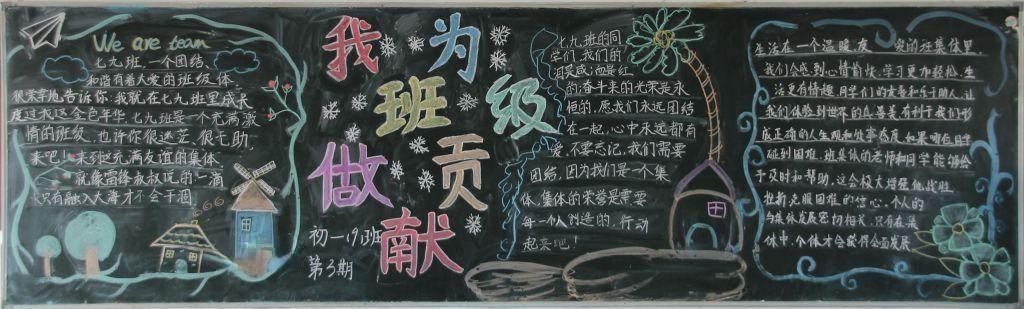 We are team
七九班,一个团结、
和谐有着大爱的班级体.
很荣幸地告诉你,我就在七九班里成长
度过我这金色年华.七九班是一个充满激
情的班级,也许你很迷茫,很无助,
来吧!来到这充满友谊的集体
就像雷锋叔叔说的一滴
水只有融入大海才不会干涸
我为
班级
做贡
献
初一(9)班
第3期
七九班的同
学们,我们的
泪笑盛洒是红
的,奋斗来的光荣是永
恒的,愿我们永远团结
在一起,心中永远都有
爱,不要忘记,我们需要
团结,因为我们是一个集
体,集体的荣誉是需要
每一个人创造的,行动
起来吧!
生活在一个温暖友爱的班集体里,
我们会感到心情愉快,学习更加轻松,生
活更有情趣.同学们的友爱和乐于助人,让
我们体验到世界的真善美,有利于我们形
成正确的人生观和处事态度.如果哪位同学
碰到困难,班集体的老师和同学能够给
予及时和帮助,这会极大增强他战胜
挫折克服困难的信心,个人的
与集体发展密切相关,只有在集
体中,个体才会获得全面发展